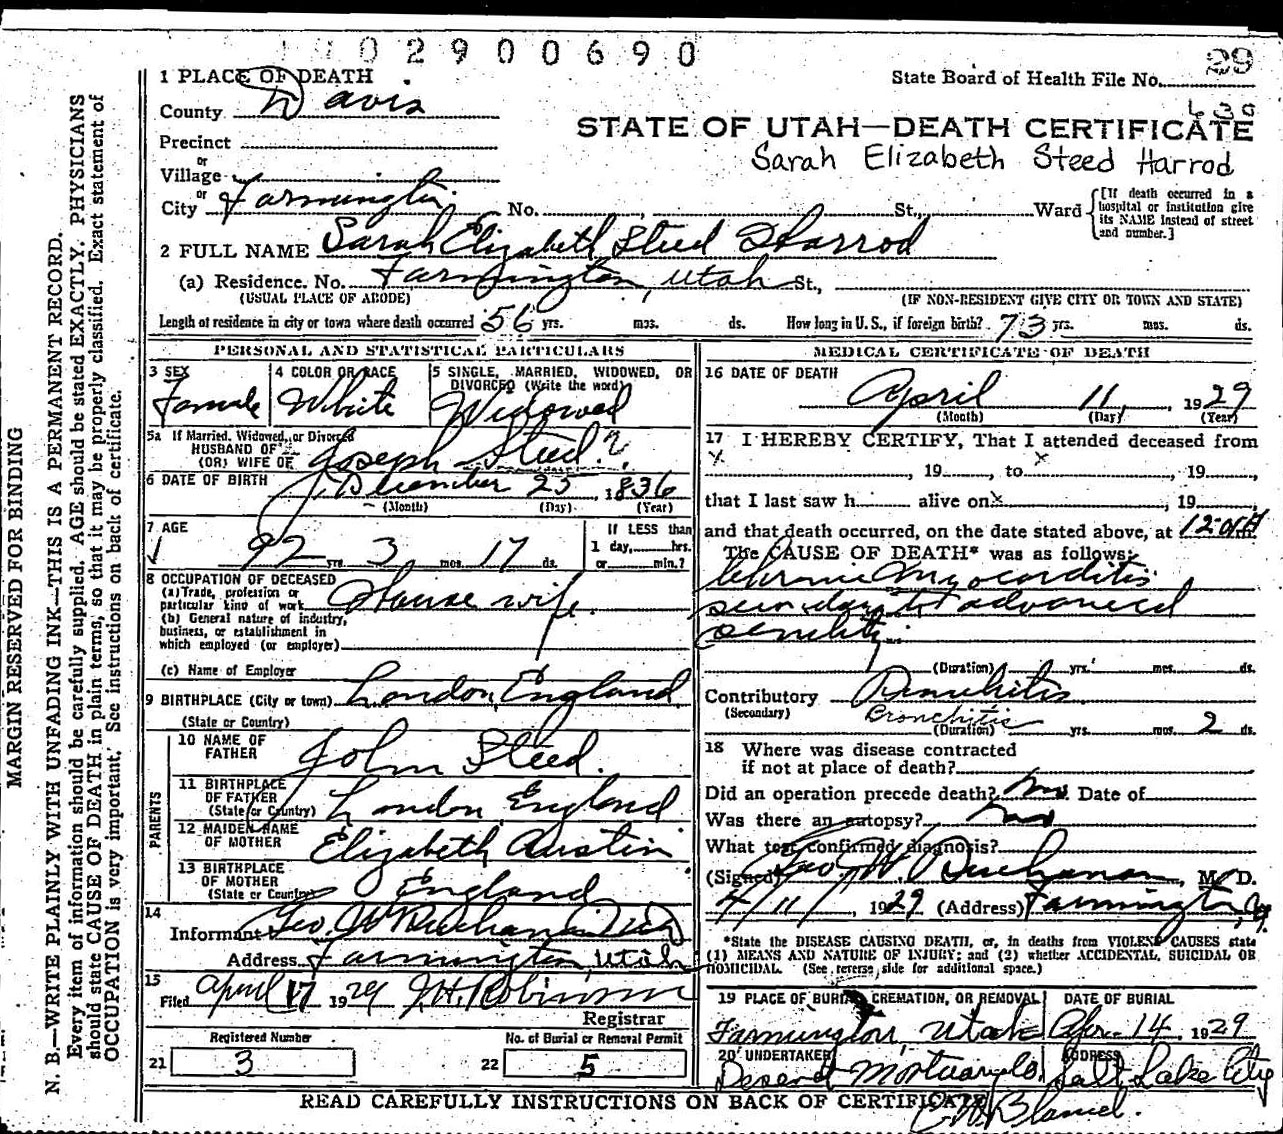 02900690
29
1 PLACE OF DEATH
State Board of Health File No.
County Davis
630
STATE OF UTAH—DEATH CERTIFICATE
Precinct
Sarah Elizabeth Steed Harrod
or
Village
or
City Farmington No. St., Ward
[If death occurred in a
hospital or institution give
its NAME instead of street
and number.]
2 FULL NAME Sarah Elizabeth Steed Harrod
(a) Residence. No. Farmington, Utah St.,
(USUAL PLACE OF ABODE) (IF NON-RESIDENT GIVE CITY OR TOWN AND STATE)
Length of residence in city or town where death occurred 56 yrs. mos. ds. How long in U. S., if foreign birth? 73 yrs. mos. ds.
PERSONAL AND STATISTICAL PARTICULARS
3 SEX
Female
4 COLOR OR RACE
White
5 SINGLE, MARRIED, WIDOWED, OR
DIVORCED (Write the word)
Widowed
5a If Married, Widowed, or Divorced
HUSBAND OF
(OR) WIFE OF Joseph Steed ?
6 DATE OF BIRTH December 25, 1836
(Month) (Day) (Year)
7 AGE
92 yrs. 3 mos. 17 ds.
If LESS than
1 day, hrs.
or min.?
8 OCCUPATION OF DECEASED
(a) Trade, profession or
particular kind of work House wife.
(b) General nature of industry,
business, or establishment in
which employed (or employer)
(c) Name of Employer
9 BIRTHPLACE (City or town) London, England
(State or Country)
PARENTS
10 NAME OF
FATHER John Steed.
11 BIRTHPLACE
OF FATHER
(State or Country) London, England
12 MAIDEN NAME
OF MOTHER Elizabeth Austin
13 BIRTHPLACE
OF MOTHER
(State or Country) England
14
Informant Geo. W Buchanan
Address Farmington, Utah
15
Filed April 17 1929 J. H. Robinson
Registrar
Registered Number
21 3
No. of Burial or Removal Permit
22 5
MEDICAL CERTIFICATE OF DEATH
16 DATE OF DEATH
April 11, 1929
(Month) (Day) (Year)
17 I HEREBY CERTIFY, That I attended deceased from
x , 19 , to x , 19 ,
that I last saw h alive on x , 19
and that death occurred, on the date stated above, at
The CAUSE OF DEATH* was as follows:
Chronic Myocarditis
secondary to advanced
senility
(Duration) yrs. mos. ds.
Contributory Bronchitis
(Secondary) Bronchitis
(Duration) yrs. mos. 2 ds.
18 Where was disease contracted
if not at place of death?
Did an operation precede death? No. Date of
Was there an autopsy? no
What test confirmed diagnosis?
(Signed) Geo. W. Buchanan, M. D.
4/11/, 1929 (Address) Farmington, U.
*State the DISEASE CAUSING DEATH, or, in deaths from VIOLENT CAUSES state
(1) MEANS AND NATURE OF INJURY; and (2) whether ACCIDENTAL, SUICIDAL OR
HOMICIDAL. (See reverse side for additional space.)
19 PLACE OF BURIAL, CREMATION, OR REMOVAL
Farmington, Utah
DATE OF BURIAL
Apr. 14, 1929
20 UNDERTAKER
Deseret Mortuary Co.
ADDRESS
Salt Lake City
READ CAREFULLY INSTRUCTIONS ON BACK OF CERTIFICATE
MARGIN RESERVED FOR BINDING
N. B.—WRITE PLAINLY WITH UNFADING INK—THIS IS A PERMANENT RECORD.
Every item of information should be carefully supplied. AGE should be stated EXACTLY. PHYSICIANS
should state CAUSE OF DEATH in plain terms, so that it may be properly classified. Exact statement of
OCCUPATION is very important. See instructions on back of certificate.